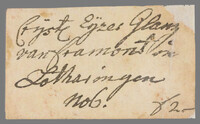 Cryst Eyzer Glanz
van framont in
Lotharingen
No6. f2-